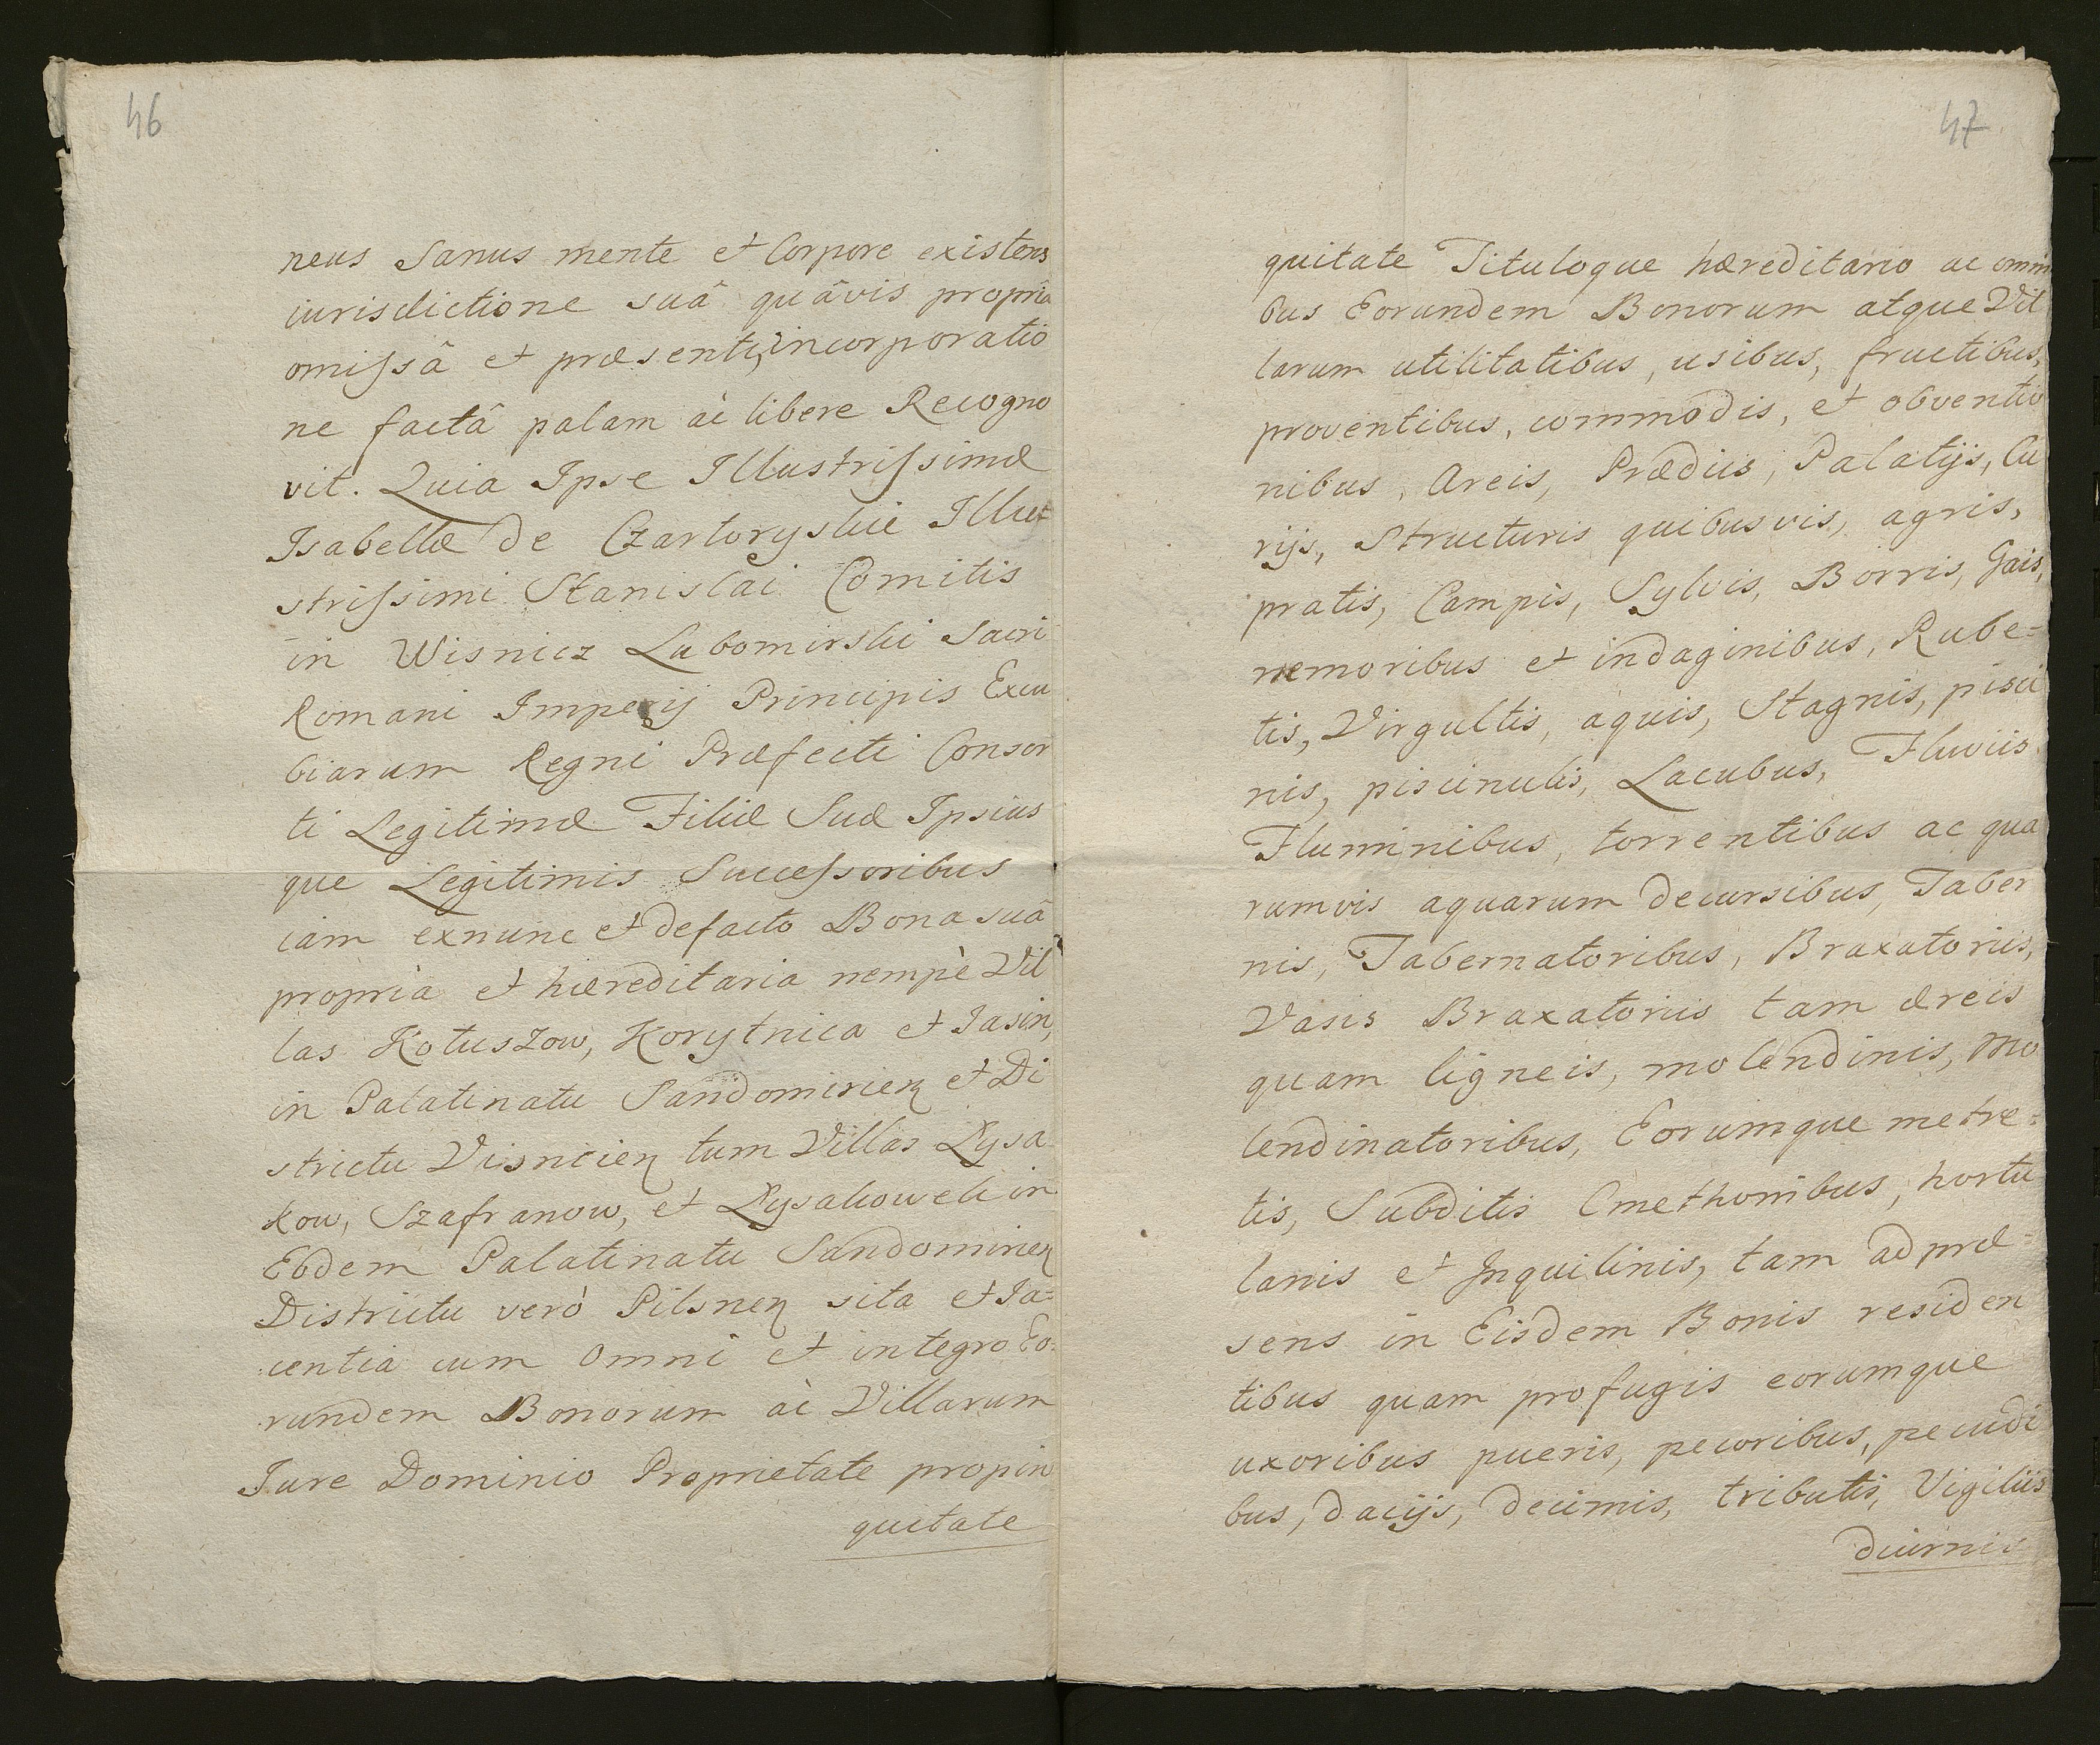 46
neus Sanus mente et Corpore existens
iurisdictione suâ quâvis propria
omissâ et præsenti, incorporatio
ne factâ palam ac libere Recogno
vit. Quia Ipse Illustrissimæ
Isabellæ de Czartoryskie Illu
strissimi Stanislai Comitis
in Wisnicz Lubomirski Sacri
Romani Imperij Principis Excu
biarum Regni Præfecti Consor
ti Legitimæ Filiæ Suæ Ipsius
que Legitimis Successoribus
iam exnunc et defacto Bona suâ
propria et hæreditaria nempè Vil
las Kotuszow, Korytnica et Jasin,
in Palatinatu Sandomirien et Di
strictu Visnicien tum Villas Łysa
kow, Szafranow, et Łysakowek in
Eodem Palatinatu Sandomirien
Districtu verò Pilsnen sita et Ja=
centia cum omni et integro Eo=
rundem Bonorum ac Villarum
Jure Dominio Proprietate propin
quitate
47
quitate Tituloque hæreditario ac omni
bus Eorundem Bonorum atque Vil
larum utilitatibus, usibus, fructibus,
proventibus, commodis, et obventio
nibus, Areis, Prædiis, Palatijs, Cu
rijs, Structuris quibusvis, agris,
pratis, Campis, Sylvis, Borris, Gais,
nemoribus et indaginibus, Rube=
tis, Virgultis, aquis, Stagnis, pisci
nis, piscinulis, Lacubus, Fluviis
Fluminibus, torrentibus ac qua
rumvis aquarum decursibus, Taber
nis, Tabernatoribus, Braxatoriis,
Vasis Braxatoriis tam æreis
quam ligneis, molendinis, mo
lendinatoribus, Eorumque metre=
tis, Subditis Cmethonibus, hortu
lanis et Inquilinis, tam ad præ=
sens in Eisdem Bonis residen
tibus quam profugis eorumque
uxoribus pueris, pecoribus, pecudi
bus, dacijs, decimis, tributis, Vigiliis
diurnis